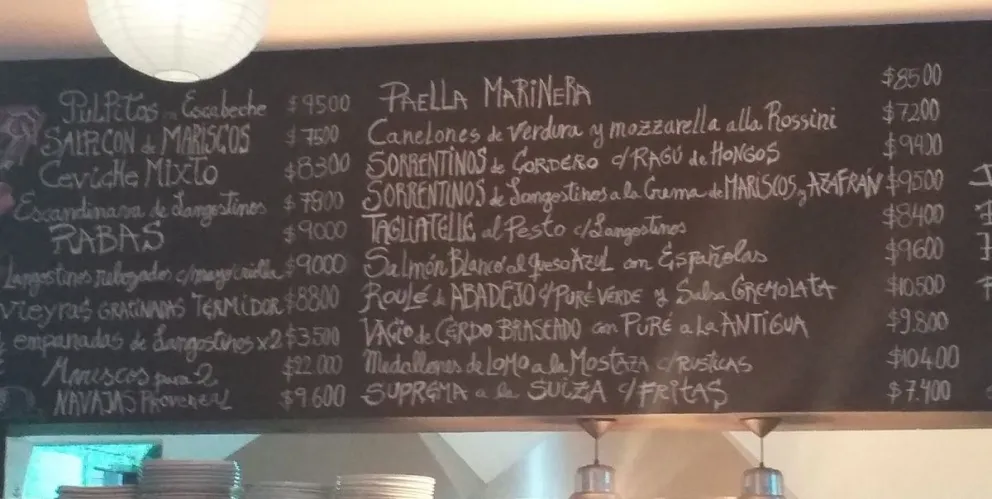 Pulpitos en Escabeche $9500
SALPICON de MARISCOS $7500
Ceviche Mixto $8300
Escandinava de Langostinos $7800
RABAS $9000
Langostinos rebozados c/mayo criolla $9000
Vieyras GRATINADAS TERMIDOR $8800
empanadas de Langostinos x2 $3500
Mariscos para 2 $22.000
NAVAJAS Provenzal $9.600
PAELLA MARINERA $8500
Canelones de Verdura y mozzarella alla Rossini $7200
SORRENTINOS de CORDERO c/RAGÚ de HONGOS $9400
SORRENTINOS de Langostinos a la Crema de MARISCOS y AZAFRÁN $9500
TAGLIATELLE al Pesto c/Langostinos $8400
Salmón Blanco al queso Azul con Españolas $9600
ROULÉ de ABADEJO c/PURÉ VERDE y Salsa GREMOLATA $10500
VACIO de CERDO BRASEADO con PURÉ a LA ANTIGUA $9.800
Medallones de LOMO a la MOSTAZA c/RUSTICAS $10400
SUPREMA a la SUIZA c/FRITAS $7.400